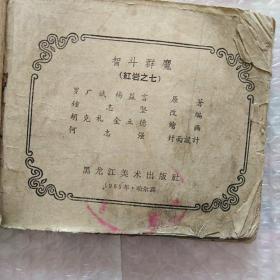 智斗群魔
(紅岩之七)
罗广斌 杨益言 原著
钟志坚 改编
胡克礼 金立德 繪画
何志强 封面設計
黑龙江美术出版社
1965年·哈尔滨